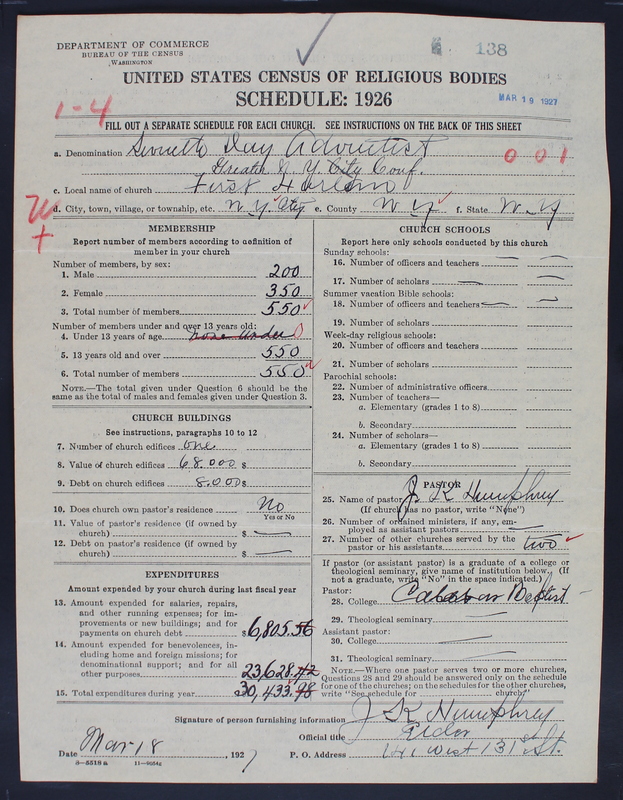 DEPARTMENT OF COMMERCE
BUREAU OF THE CENSUS
WASHINGTON
138
UNITED STATES CENSUS OF RELIGIOUS BODIES
SCHEDULE: 1926
MAR 19 1927
1-4
FILL OUT A SEPARATE SCHEDULE FOR EACH CHURCH. SEE INSTRUCTIONS ON THE BACK OF THIS SHEET
a. Denomination Seventh Day Adventist
Greater N. Y. City Conf.
0 0 1
c. Local name of church First Harlem
d. City, town, village, or township, etc. N. Y. City e. County N Y f. State N. Y
MEMBERSHIP
Report number of members according to definition of
member in your church
Number of members, by sex:
1. Male 200
2. Female 350
3. Total number of members 550
Number of members under and over 13 years old:
4. Under 13 years of age None under 0
5. 13 years old and over 550
6. Total number of members 550
NOTE.—The total given under Question 6 should be the
same as the total of males and females given under Question 3.
CHURCH BUILDINGS
See instructions, paragraphs 10 to 12
7. Number of church edifices one
8. Value of church edifices 68.000 $
9. Debt on church edifices 8.000 $
10. Does church own pastor's residence? No
Yes or No
11. Value of pastor's residence (if owned by
church) $ —
12. Debt on pastor's residence (if owned by
church) $ —
EXPENDITURES
Amount expended by your church during last fiscal year
13. Amount expended for salaries, repairs,
and other running expenses; for im-
provements or new buildings; and for
payments on church debt $ 6,805.56
14. Amount expended for benevolences, in-
cluding home and foreign missions; for
denominational support; and for all
other purposes 23,628.42
15. Total expenditures during year $ 30,433.98
CHURCH SCHOOLS
Report here only schools conducted by this church
Sunday schools:
16. Number of officers and teachers —
17. Number of scholars —
Summer vacation Bible schools:
18. Number of officers and teachers —
19. Number of scholars
Week-day religious schools:
20. Number of officers and teachers
21. Number of scholars
Parochial schools:
22. Number of administrative officers
23. Number of teachers—
a. Elementary (grades 1 to 8)
b. Secondary
24. Number of scholars—
a. Elementary (grades 1 to 8)
b. Secondary
PASTOR
25. Name of pastor J. K Humphrey
(If church has no pastor, write "None")
26. Number of ordained ministers, if any, em-
ployed as assistant pastors —
27. Number of other churches served by the
pastor or his assistants two
If pastor (or assistant pastor) is a graduate of a college or
theological seminary, give name of institution below. (If
not a graduate, write "No" in the space indicated.)
Pastor:
28. College Calabar Baptist
29. Theological seminary —
Assistant pastor:
30. College —
31. Theological seminary —
NOTE.—Where one pastor serves two or more churches,
Questions 28 and 29 should be answered only on the schedule
for one of the churches; on the schedules for the other churches,
write "See schedule for church"
Signature of person furnishing information J K Humphrey
Official title Elder
Date Mar 18, 1927 P. O. Address 141 West 131 St.
8—5518 a 11—9054c